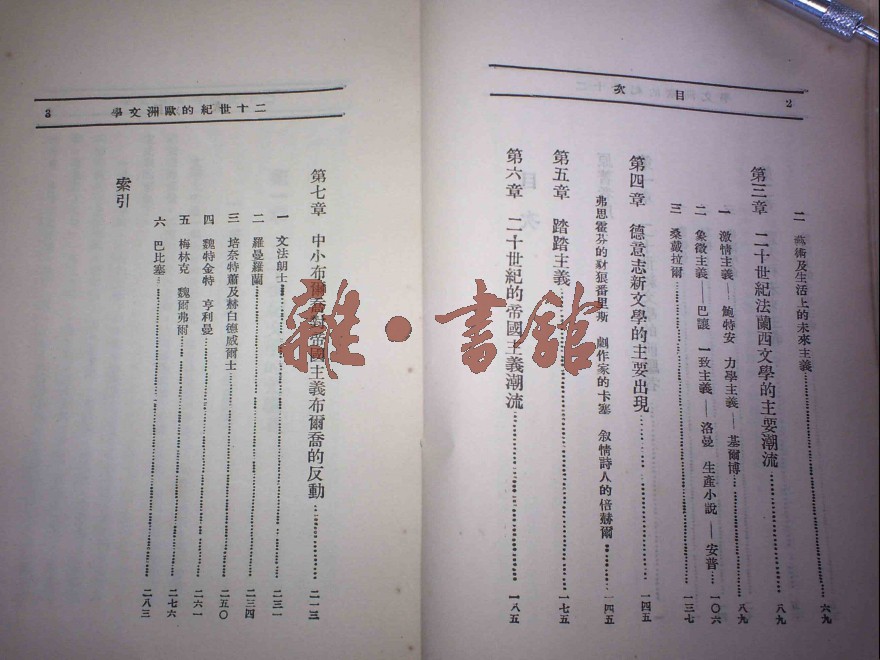 2　目次
二　藝術及生活上的未來主義……………六九
第三章　二十世紀法蘭西文學的主要潮流……………八九
一　激情主義——鮑特安　力學主義——基爾博……………八九
二　象徵主義——巴讓　一致主義——洛曼　生產小說——安普……一〇六
三　桑戴拉爾……………一三七
第四章　德意志新文學的主要出現……………一四五
弗思霍芬的豺狼番里斯　劇作家的卡塞　敘情詩人的倍赫爾……………一四五
第五章　踏踏主義……………一七五
第六章　二十世紀的帝國主義潮流……………一八五
二十世紀的歐洲文學　3
第七章　中小布爾喬對帝國主義布爾喬的反動……………二一三
一　文法朗士……………二三一
二　羅曼羅蘭……………二三四
三　培奈特蕭及赫白德威爾士……………二五〇
四　魏特金特　亨利曼……………二六一
五　梅林克　魏爾弗爾……………二七六
六　巴比塞……………二八三
索引
雜·書館